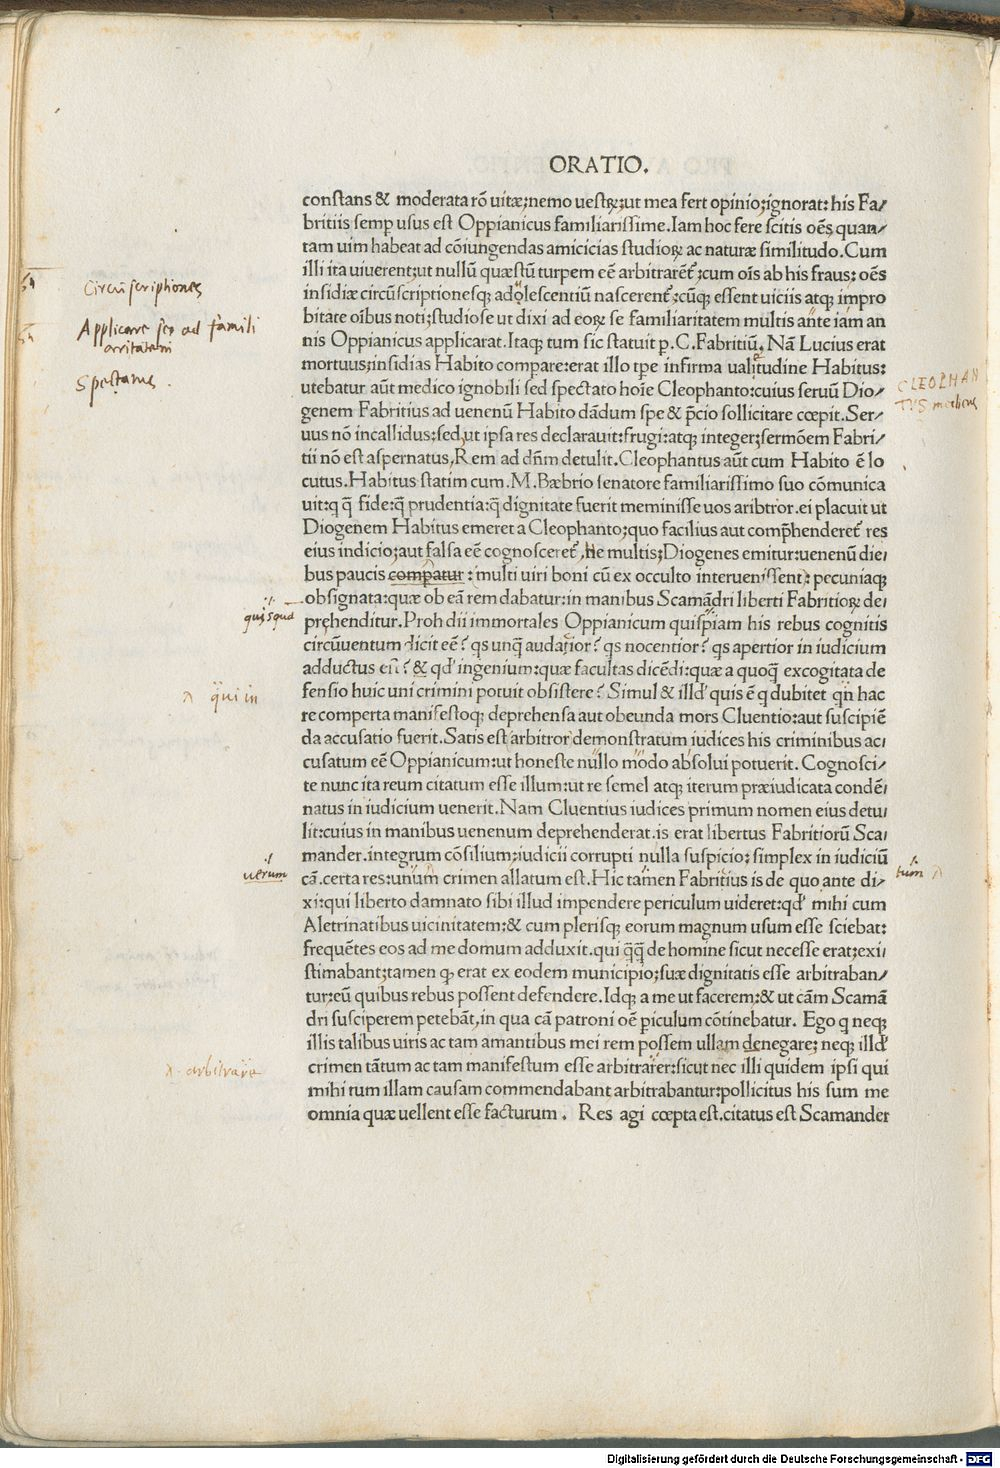 ORATIO.
constans & moderata rō uitæ;nemo uestꝝ;ut mea fert opinio;ignorat: his Fa/
britiis semp̱ usus est Oppianicus familiarissime.Iam hoc fere scitis oēs quan/
tam uim habeat ad cōiungendas amicicias studioꝝ ac naturæ similitudo.Cum
illi ita uiuerent;ut nullū quæstū turpem eē arbitrarēt᷑;cum oīs ab his fraus; oēs
insidiæ circūscriptionesq; adolescentiū nascerent᷑;cūq; essent uiciis atq; impro
bitate oībus noti;studiose ut dixi ad eoꝝ se familiaritatem multis ante iam an
nis Oppianicus applicarat.Itaq; tum sic statuit p̱.C.Fabritiū. Nā Lucius erat
mortuus;insidias Habito compare:erat illo tp̄e infirma ualitudine Habitus:
utebatur aūt medico ignobili sed spectato hoīe Cleophanto:cuius seruū Dio/
genem Fabritius ad uenenū Habito dādum spe & p̄cio sollicitare cœpit.Ser/
uus nō incallidus;sed;ut ipsa res declarauit:frugi:atq; integer;sermōem Fabri/
tii nō est aspernatus,Rem ad dn̄m detulit.Cleophantus aūt cum Habito ē lo
cutus.Habitus statim cum.M.Bæbrio senatore familiarissimo suo cōmunica
uit:q q̄ fide:q̄ prudentia:q̄ dignitate fuerit meminisse uos aribtror.ei placuit ut
Diogenem Habitus emeret a Cleophanto;quo facilius aut comp̄henderet᷑ res
eius indicio;aut falsa eē cognosceret᷑. Ne multis;Diogenes emitur:uenenū die
bus paucis comp̱atur : multi uiri boni cū ex occulto interuenissent: pecuniaq;
obsignata:quæ ob eā rem dabatur:in manibus Scamādri liberti Fabritioꝝ de
pręhenditur.Proh dii immortales Oppianicum quispiam his rebus cognitis
circūuentum dicit eē? q̱s unq̄ audatior? q̱s nocentior? q̱s apertior in iudicium
adductus est? & qd' ingenium:quæ facultas dicēdi:quæ a quoq̄ excogitata de
fensio huic uni crimini potuit obsistere? Simul & illd' quis ē q̱ dubitet q̱n hac
re comperta manifestoq; deprehensa aut obeunda mors Cluentio:aut suscipiē
da accusatio fuerit. Satis est arbitror demonstratum iudices his criminibus ac
cusatum eē Oppianicum:ut honeste nullo modo absolui potuerit. Cognosci/
te nunc ita reum citatum esse illum:ut re semel atq; iterum præiudicata condē
natus in iudicium uenerit.Nam Cluentius iudices primum nomen eius detu
lit:cuius in manibus uenenum deprehenderat.is erat libertus Fabritiorū Sca
mander.integrum cōsilium;iudicii corrupti nulla suspicio; simplex in iudiciū
cā.certa res:unum crimen allatum est.Hic tamen Fabritius is de quo ante di/
xi:qui liberto damnato sibi illud impendere periculum uideret:qd' mihi cum
Aletrinatibus uicinitatem:& cum plerisq; eorum magnum usum esse sciebat:
frequētes eos ad me domum adduxit.qui q̄q̄ de homine sicut necesse erat;exi
stimabant;tamen q̱ erat ex eodem municipio;suæ dignitatis esse arbitraban/
tur:eū quibus rebus possent defendere.Idq; a me ut facerem:& ut cām Scamā
dri susciperem petebāt,in qua cā patroni oē p̱iculum cōtinebatur. Ego q neq;
illis talibus uitis ac tam amantibus mei rem possem ullam denegare; neq; illd'
crimen tātum ac tam manifestum esse arbitrarer:sicut nec illi quidem ipsi qui
mihi tum illam causam commendabant arbitrabantur:pollicitus his sum me
omnia quæ uellent esse facturum . Res agi cœpta est.citatus est Scamander
Circūscriptiones
Applicare se ad famili
aritatem
Spectatus .
CLEOPHAN
TVS medicus
quisquā
qui in
uerum
tum
arbitrare
Digitalisierung gefördert durch die Deutsche Forschungsgemeinschaft - DFG